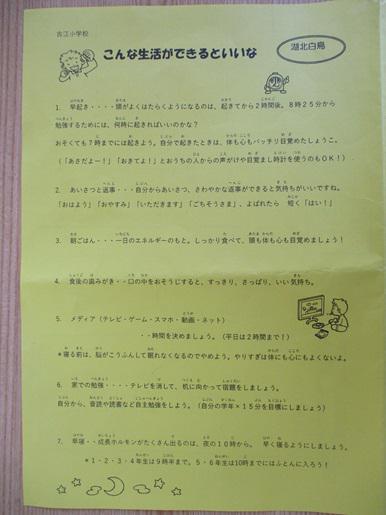 古江小学校
こんな生活ができるといいな
湖北白鳥
1. 早起き・・・・頭がよくはたらくようになるのは、起きてから2時間後。8時25分から
勉強するためには、何時に起きればいいのかな?
おそくても7時までには起きよう。自分で起きたときは、体も心もバッチリ目覚めたしょうこ。
(「あさだよー!」「おきてよ!」とおうちの人からの声がけや目覚まし時計を使うのもOK!)
2. あいさつと返事・・・自分からあいさつ、さわやかな返事ができると気持ちがいいですね。
「おはよう」「おやすみ」「いただきます」「ごちそうさま」、よばれたら 短く「はい!」
3. 朝ごはん・・・一日のエネルギーのもと。しっかり食べて、頭も体も心も目覚めましょう!
4. 食後の歯みがき・・口の中をおそうじすると、すっきり、さっぱり、いい気持ち。
5. メディア(テレビ・ゲーム・スマホ・動画・ネット)
・・時間を決めましょう。(平日は2時間まで!)
*寝る前は、脳がこうふんして眠れなくなるのでやめよう。やりすぎは体にも心にもよくないよ。
6. 家での勉強・・・・テレビを消して、机に向かって宿題をしましょう。
自分から、音読や読書など自主勉強をしよう。(自分の学年×15分を目標にしましょう)
7. 早寝・・成長ホルモンがたくさん出るのは、夜の10時から。 早く寝るようにしましょう。
*1・2・3・4年生は9時半まで。5・6年生は10時までにはふとんに入ろう!